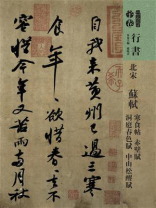 行書
北宋
蘇軾
寒食帖 赤壁賦
洞庭春色賦 中山松醪賦
自我来黄州已過三寒
食年〻欲惜春〻去不
容惜今年又苦雨兩月秋